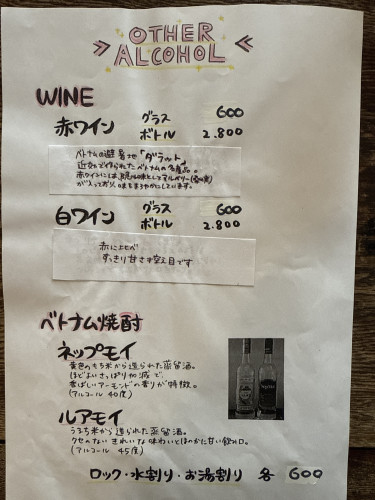 OTHER
ALCOHOL
WINE
赤ワイン グラス 600
ボトル 2.800
ベトナムの避暑地「ダラット」
近郊で作られたベトナムの名産品。
赤ワインには、隠し味としてマルベリー(桑の実)
が入っており、味をまろやかにしています。
白ワイン グラス 600
ボトル 2.800
赤に比べ
すっきり甘さ控え目です
ベトナム焼酎
ネップモイ
黄色のもち米から造られた蒸留酒。
ほどよいさっぱり加減で、
香ばしいアーモンドの香りが特徴。
(アルコール 40度)
ルアモイ
うるち米から造られた蒸留酒。
クセのない きれいな味わいとほのかに甘い飲み口。
(アルコール 45度)
ロック・水割り・お湯割り 各 600